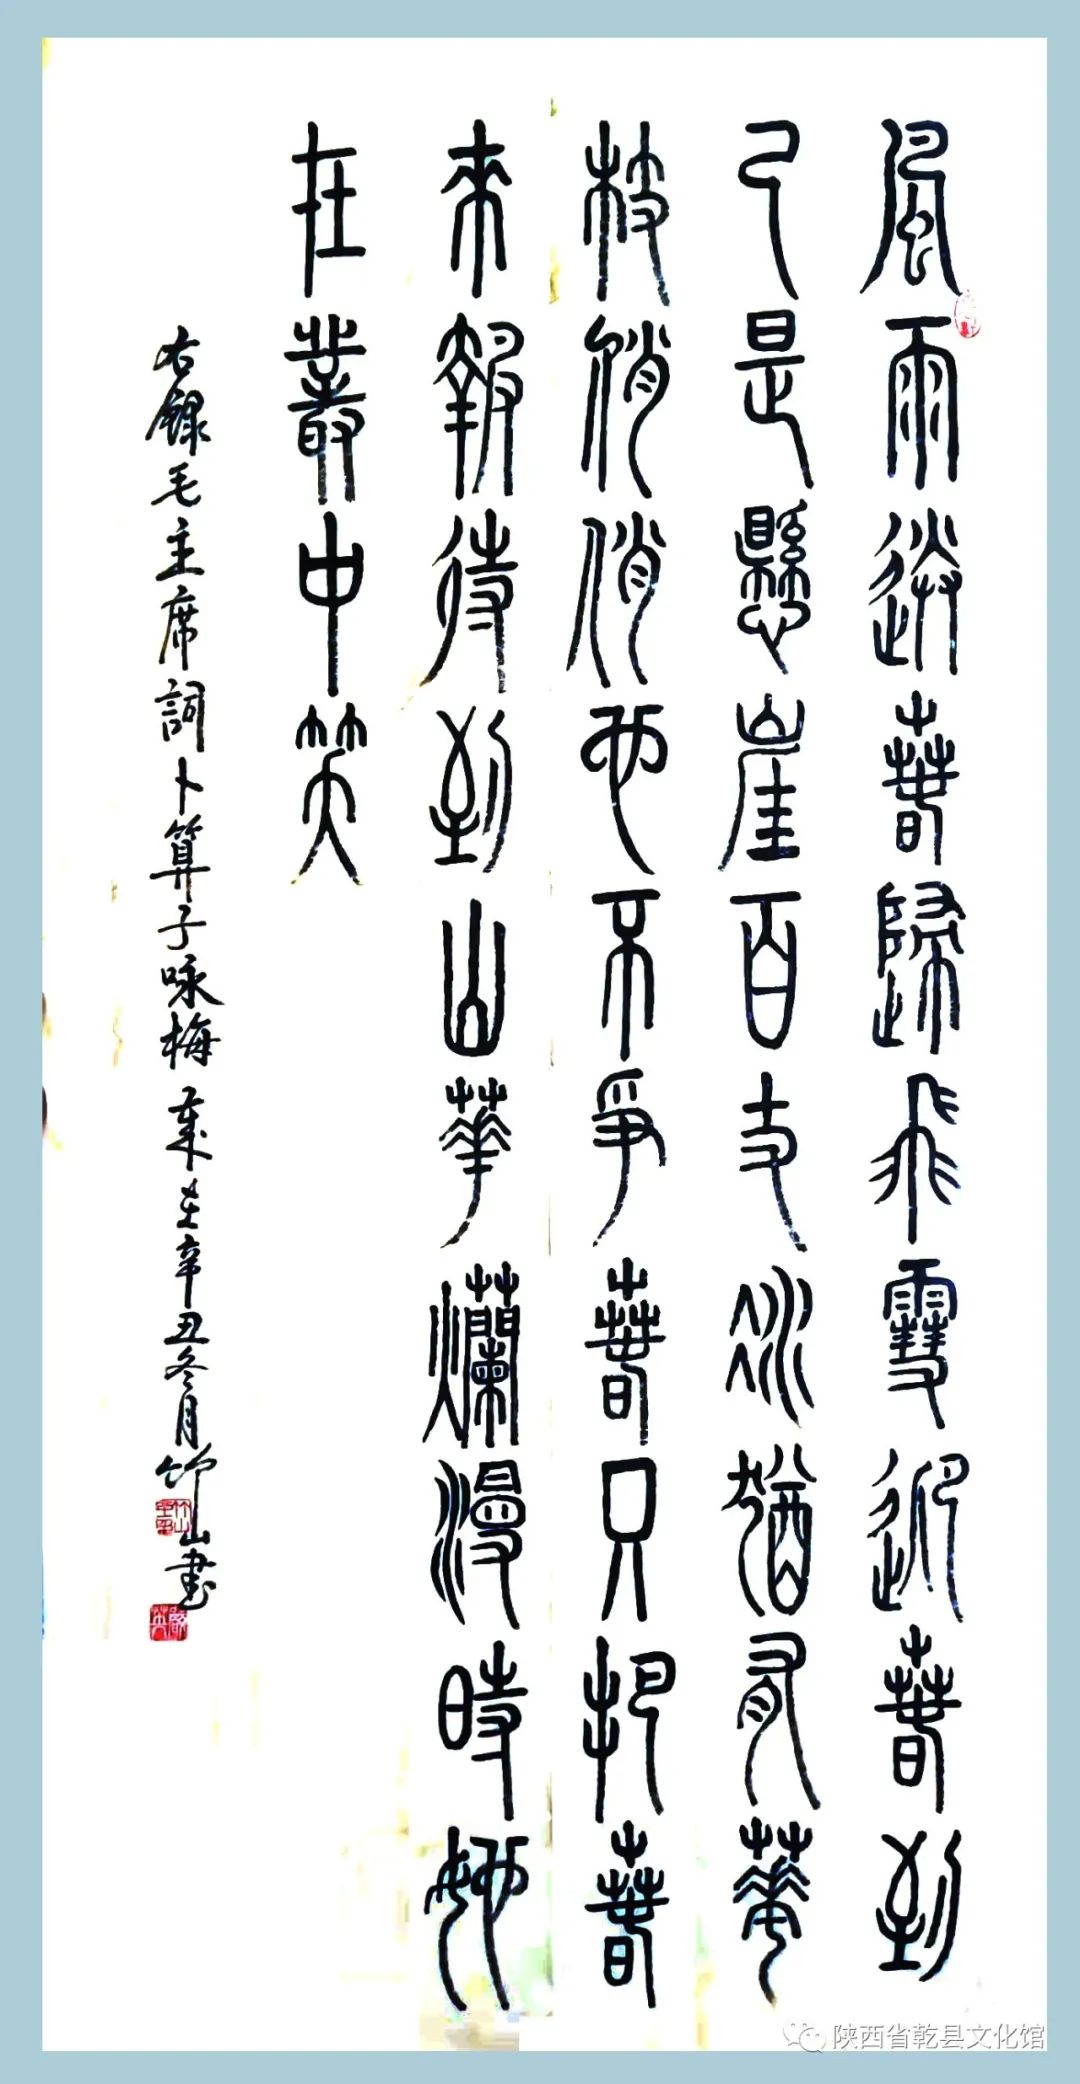 風雨送春歸飛雪迎春到
已是懸崖百丈冰猶有華
枝俏俏也不爭春只把春
來報待到山華爛漫時她
在叢中笑
右錄毛主席詞卜算子咏梅歲在辛丑冬月竹山書
陕西省乾县文化馆